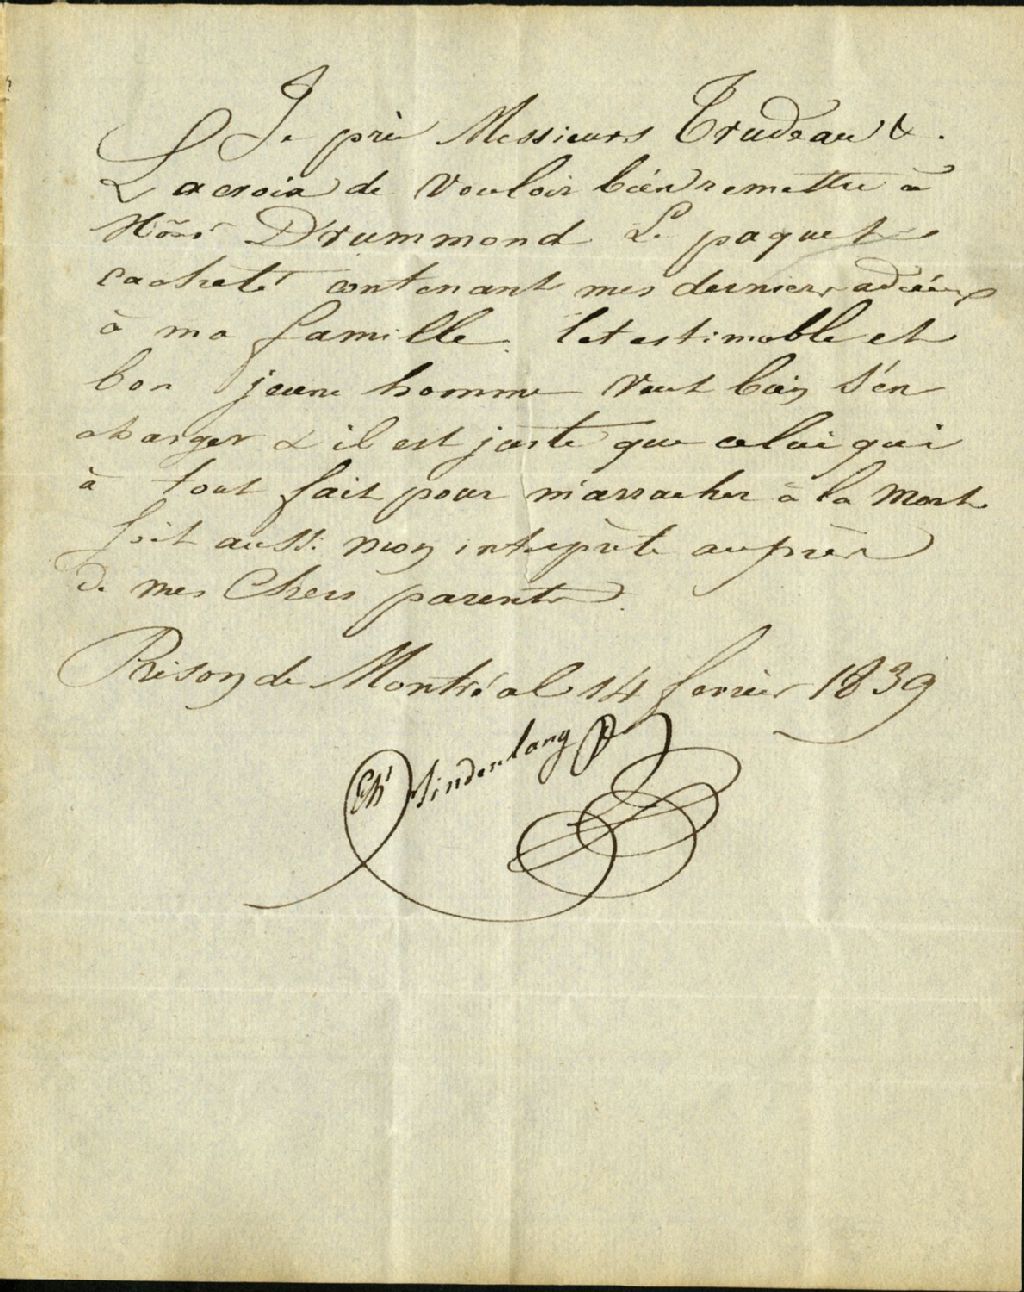 Je prie Messieurs Trudeau &
Lacroix de vouloir bien remettre à
Drummond Le paquet
cacheté contenant mes derniers adieux
à ma famille. Cet estimable et
bon jeune homme veut bien s'en
charger & il est juste que celui qui
à tout fait pour m'arracher à la mort
soit aussi mon interprète auprès
de mes Chers parents.
Prison de Montréal 14 fevrier 1839
Chs Hindenlang